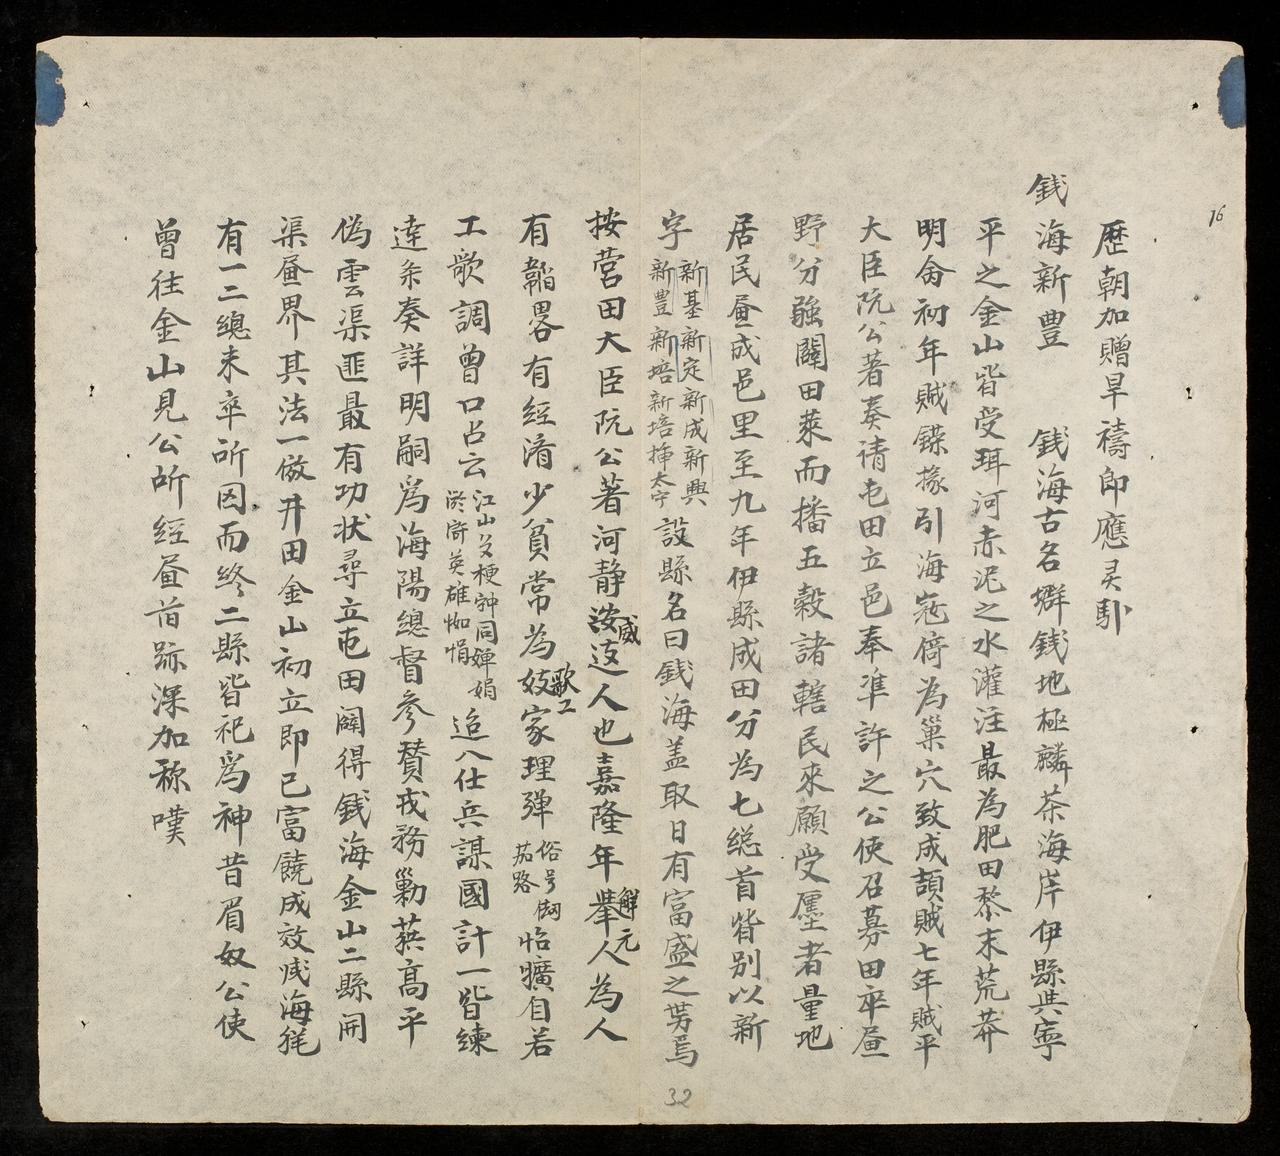 16
歷朝加贈旱禱即應灵卧
銭海新豊 銭海古名墀銭地極麟茶海岸伊縣與寧
平之金山皆受珥河赤泥之水灌注最為肥田黎末荒莽
明命初年賊鏶掾引海冦倚為巢穴致成頡賊七年賊平
大臣阮公著奏请屯田立邑奉准許之公使召募田卒㞐
野分強闢田萊而播五穀諸轄民來願受㕓者量地
居民㞐成邑里至九年伊縣成田分為七総首皆别以新
字 新基新定新成新興
新豊新培新培揷太宁 設縣名曰銭海盖取日有富盛之势焉
按营田大臣阮公著河静
威
这人也嘉隆年舉人
解元
為人
有韜畧有經濟少貧常為妓家
歌工
理彈 俗号
茄路 怡曠自若
工歌調曾口占云 江山 梗 同婵娟
寄英雄 追入仕兵謀國計一皆練
達条奏詳明嗣爲海陽總督参賛戎務勦蓺高平
偽雲渠匪最有功状尋立屯田闢得銭海金山二縣開
渠㞐界其法一倣井田金山初立即已富饒成效咸海
有一二總未卒所因而終二縣皆祀爲神昔眉奴公使
曾往金山見公所經㞐首跡深加称嘆
32